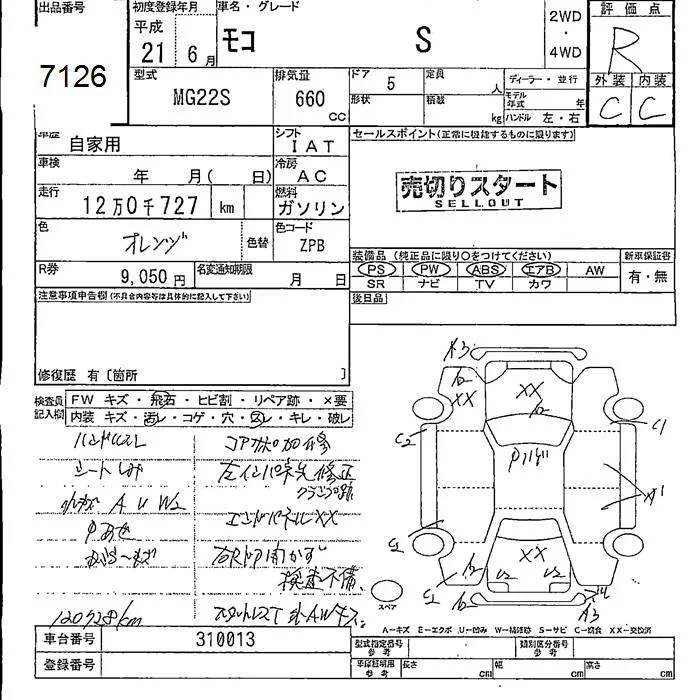 出品番号
7126
初度登録年月
平成
21 6月
車名・グレード
モコ S
2WD
・
4WD
評価点
R
外装 内装
C C
型式
MG22S
排気量
660 CC
ドア
5
定員
人
形状
積載
kg
ディーラー・並行
モデル年式 年
ハンドル 左・右
車歴
自家用
シフト
IAT
車検
年 月( 日)
冷房
AC
走行
12万0千727 km
燃料
ガソリン
色
オレンジ
色替
色コード
ZPB
R券
9,050円
名変通知期限
月 日
セールスポイント(正常に機能するものに限ります)
売切りスタート
SELLOUT
装備品 (純正品に限り○をつけてください)
PS PW ABS エアB AW
SR ナビ TV カワ
新車保証書
有・無
後日品
注意事項申告欄(不具合内容等は具体的に記入して下さい)
修復歴 有〔箇所 〕
検査員記入欄
FW キズ・飛石・ヒビ割・リペア跡・×要
内装 キズ・汚レ・コゲ・穴・スレ・キレ・破レ
ハンドルスレ
シートしみ
A U W2
コアサポ加修
左インパネ先修正
クランプ跡
エンドパネルXX
右Rドア開かず
検査不備
120728km
スタットレスT
A3
A2
XX
XX
A2
C2
C1
A1
C1
XX
A2
U2
U2
C1
A2
A3
スペア
A-キズ E-エクボ U-凹み W-補修跡 S-サビ C-腐食 XX-交換済
車台番号
310013
登録番号
型式指定番号
参考
類別区分番号
参考
車庫証明用
参考
長さ cm
幅 cm
高さ cm